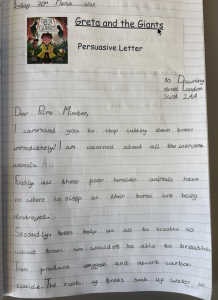 20th March
Greta and the Giants
Persuasive Letter
to Downing
street London
SW1A 2AA
Dear Prime Minister,
I command you to stop cutting down trees
immediately! I am concerned about all the innocent
animals. All
Firstly all these poor homeless animals have
no where to sleep as their homes are being
destroyed.
Secondly, trees help us all to breathe so
without trees we wouldn't be able to breathe.
Trees produce oxygen and absorb carbon
dioxide. The roots of trees soak up water so